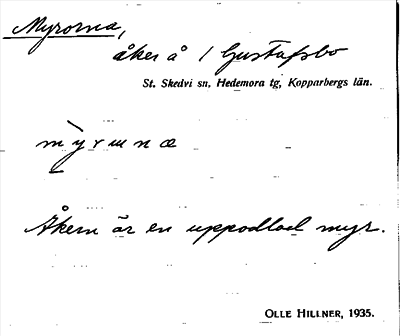 Myrorna,
åker å / Gustafsbo
St. Skedvi sn, Hedemora tg, Kopparbergs län.
m y r ɯ n æ
Åkern är en uppodlad myr.
OLLE HILLNER, 1935.